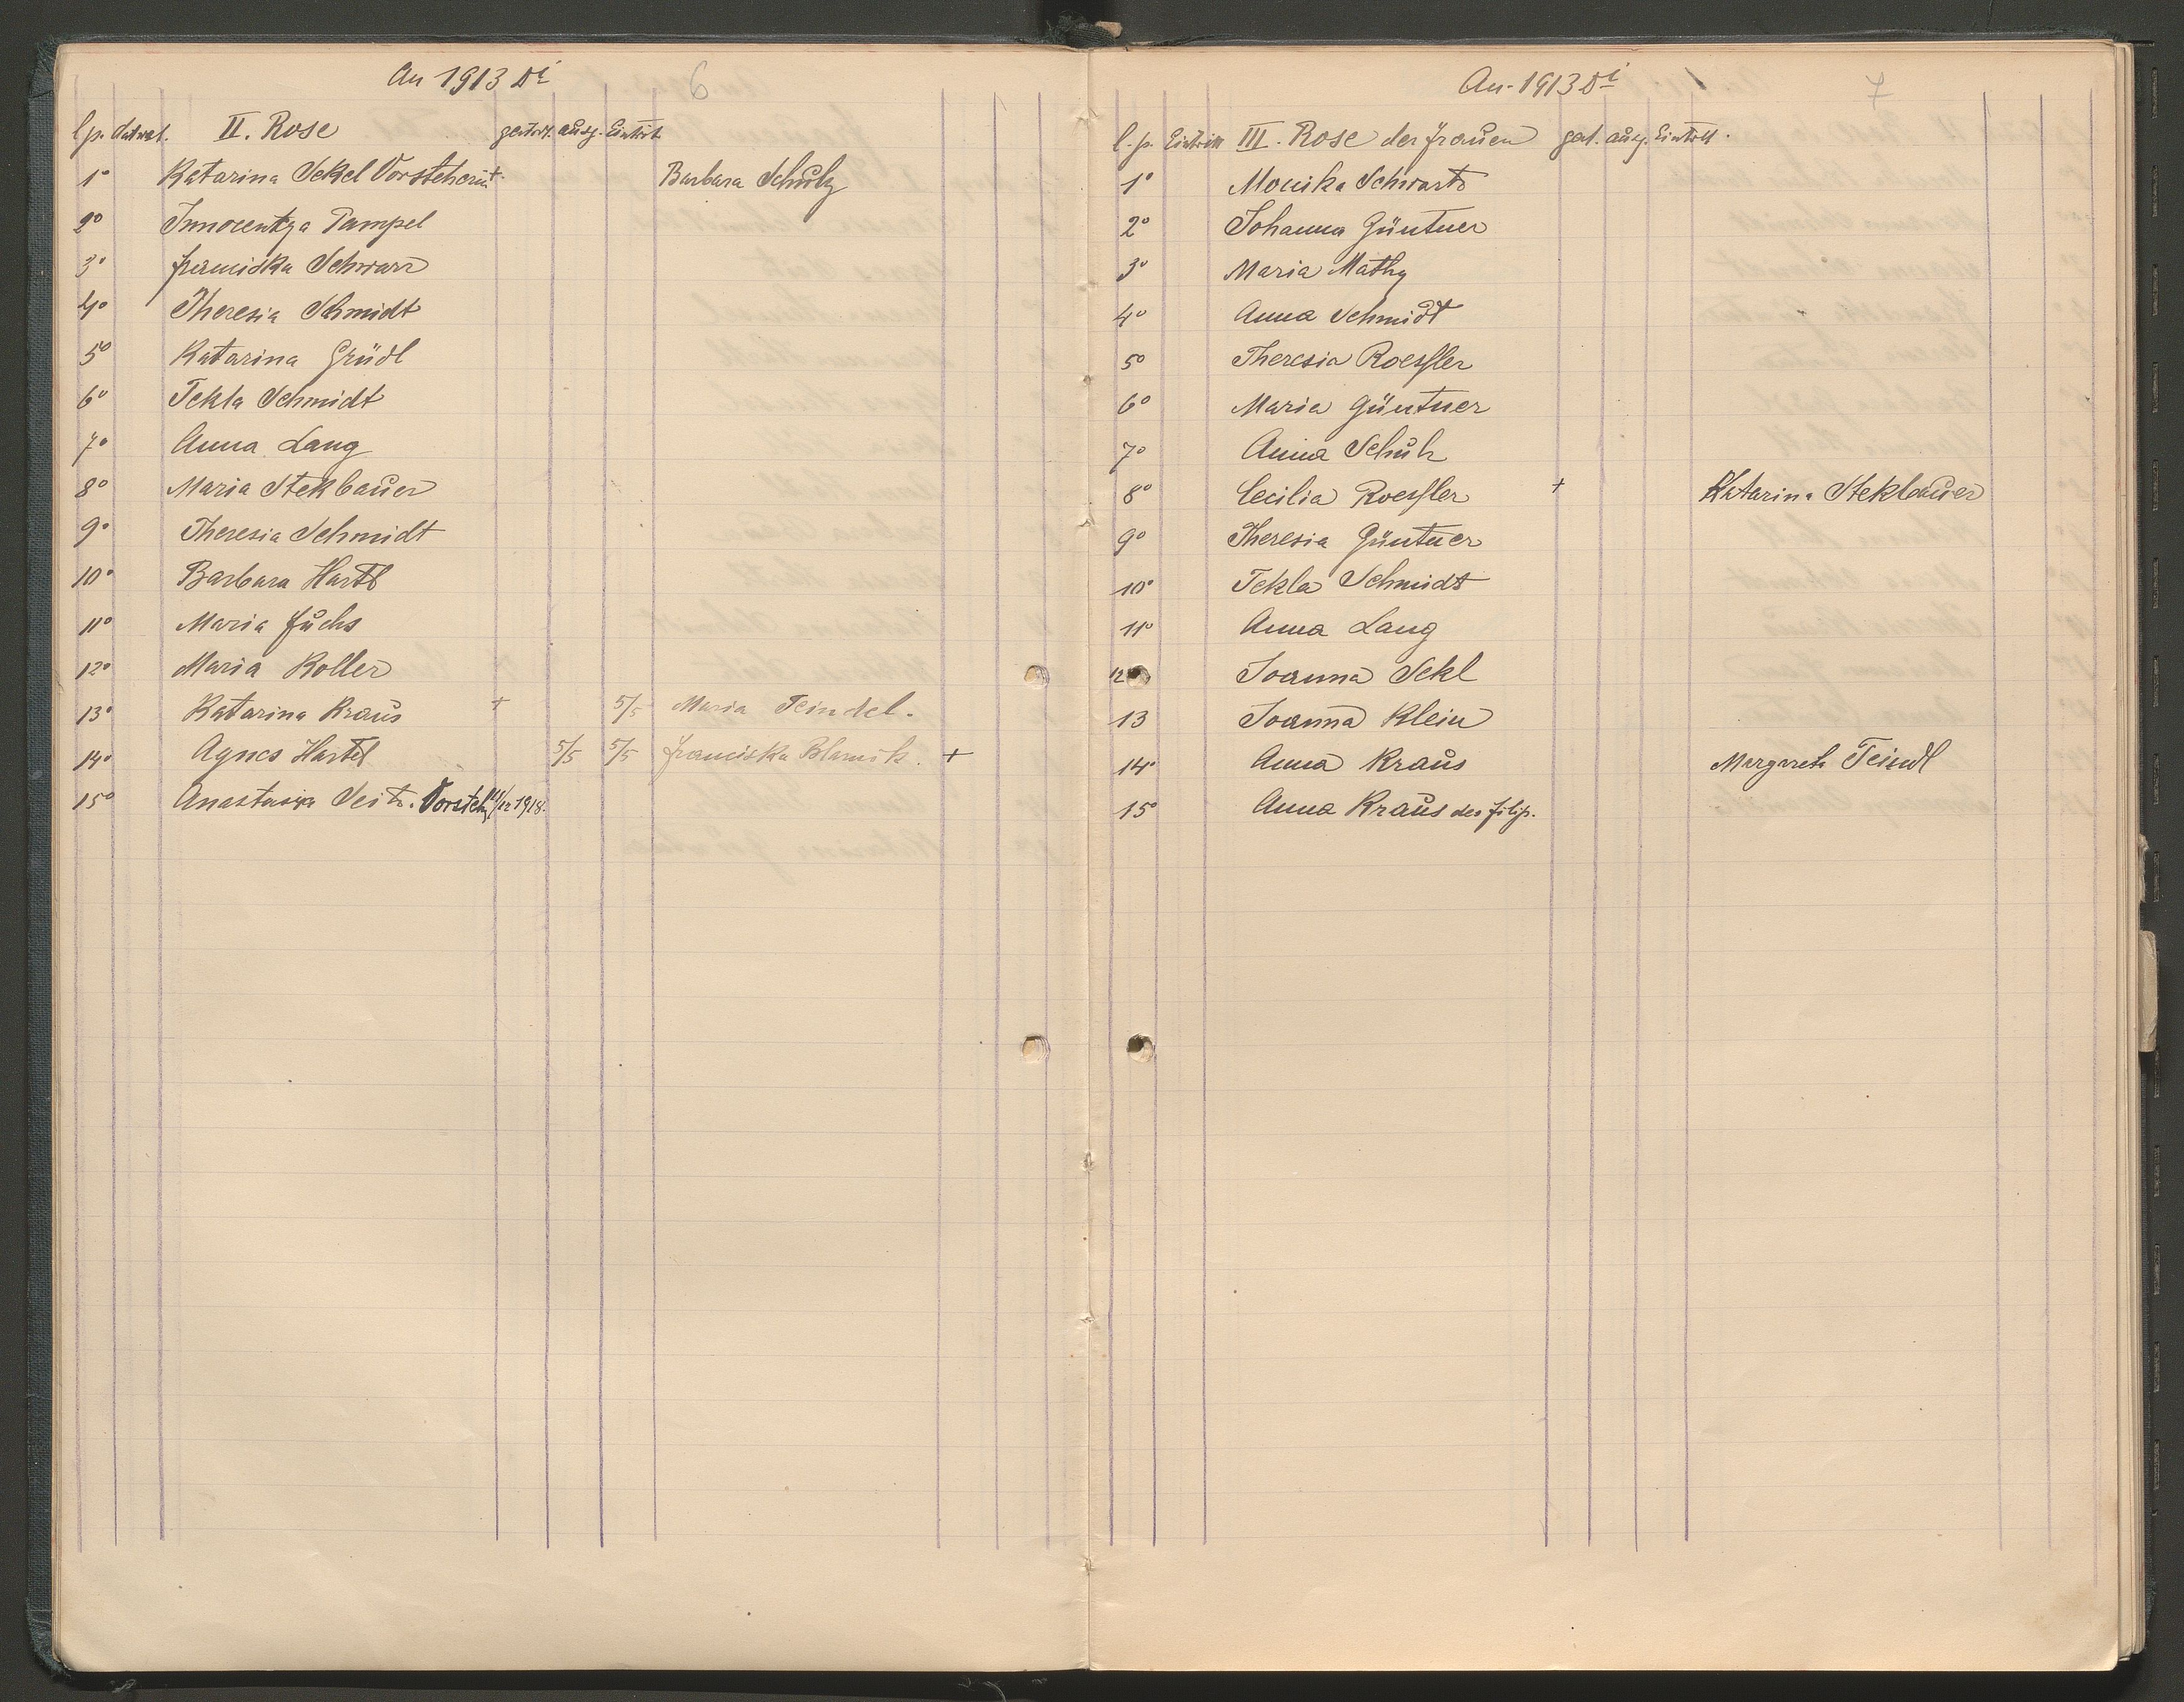 An 1913 Di 6
l.p. Eintrat. II. Rose gestorb. ausg. Eintritt
1° Katarina Sekel Vorsteherin + Barbara Schulz
2° Innocentya Pampel
3° Franciska Schwarz
4° Theresia Schmidt
5° Katarina Gründl
6° Tekla Schmidt
7° Anna Lang
8° Maria Stekbauer
9° Theresia Schmidt
10° Barbara Hartl
11° Maria Fuchs
12° Maria Koller
13° Katarina Kraus + 5/5 Maria Teindel.
14° Agnes Hartel 5/5 5/5 Franciska Blarnik. +
15° Anastasya Seitz. Vorsteh. /12 1918.
An. 1913 Di 7
l.p. Eintritt III. Rose der Frauen gest. ausg. Eintritt.
1° Monika Schwartz
2° Johanna Güntner
3° Maria Mathy
4° Anna Schmidt
5° Theresia Roessler
6° Maria Güntner
7° Anna Schulz
8° Cecilia Roessler + Katarina Stekbauer
9° Theresia Güntner
10° Tekla Schmidt
11° Anna Lang
12 Joanna Sekl
13 Joanna Klein
14° Anna Kraus Margareta Teindl
15° Anna Kraus des Filip.